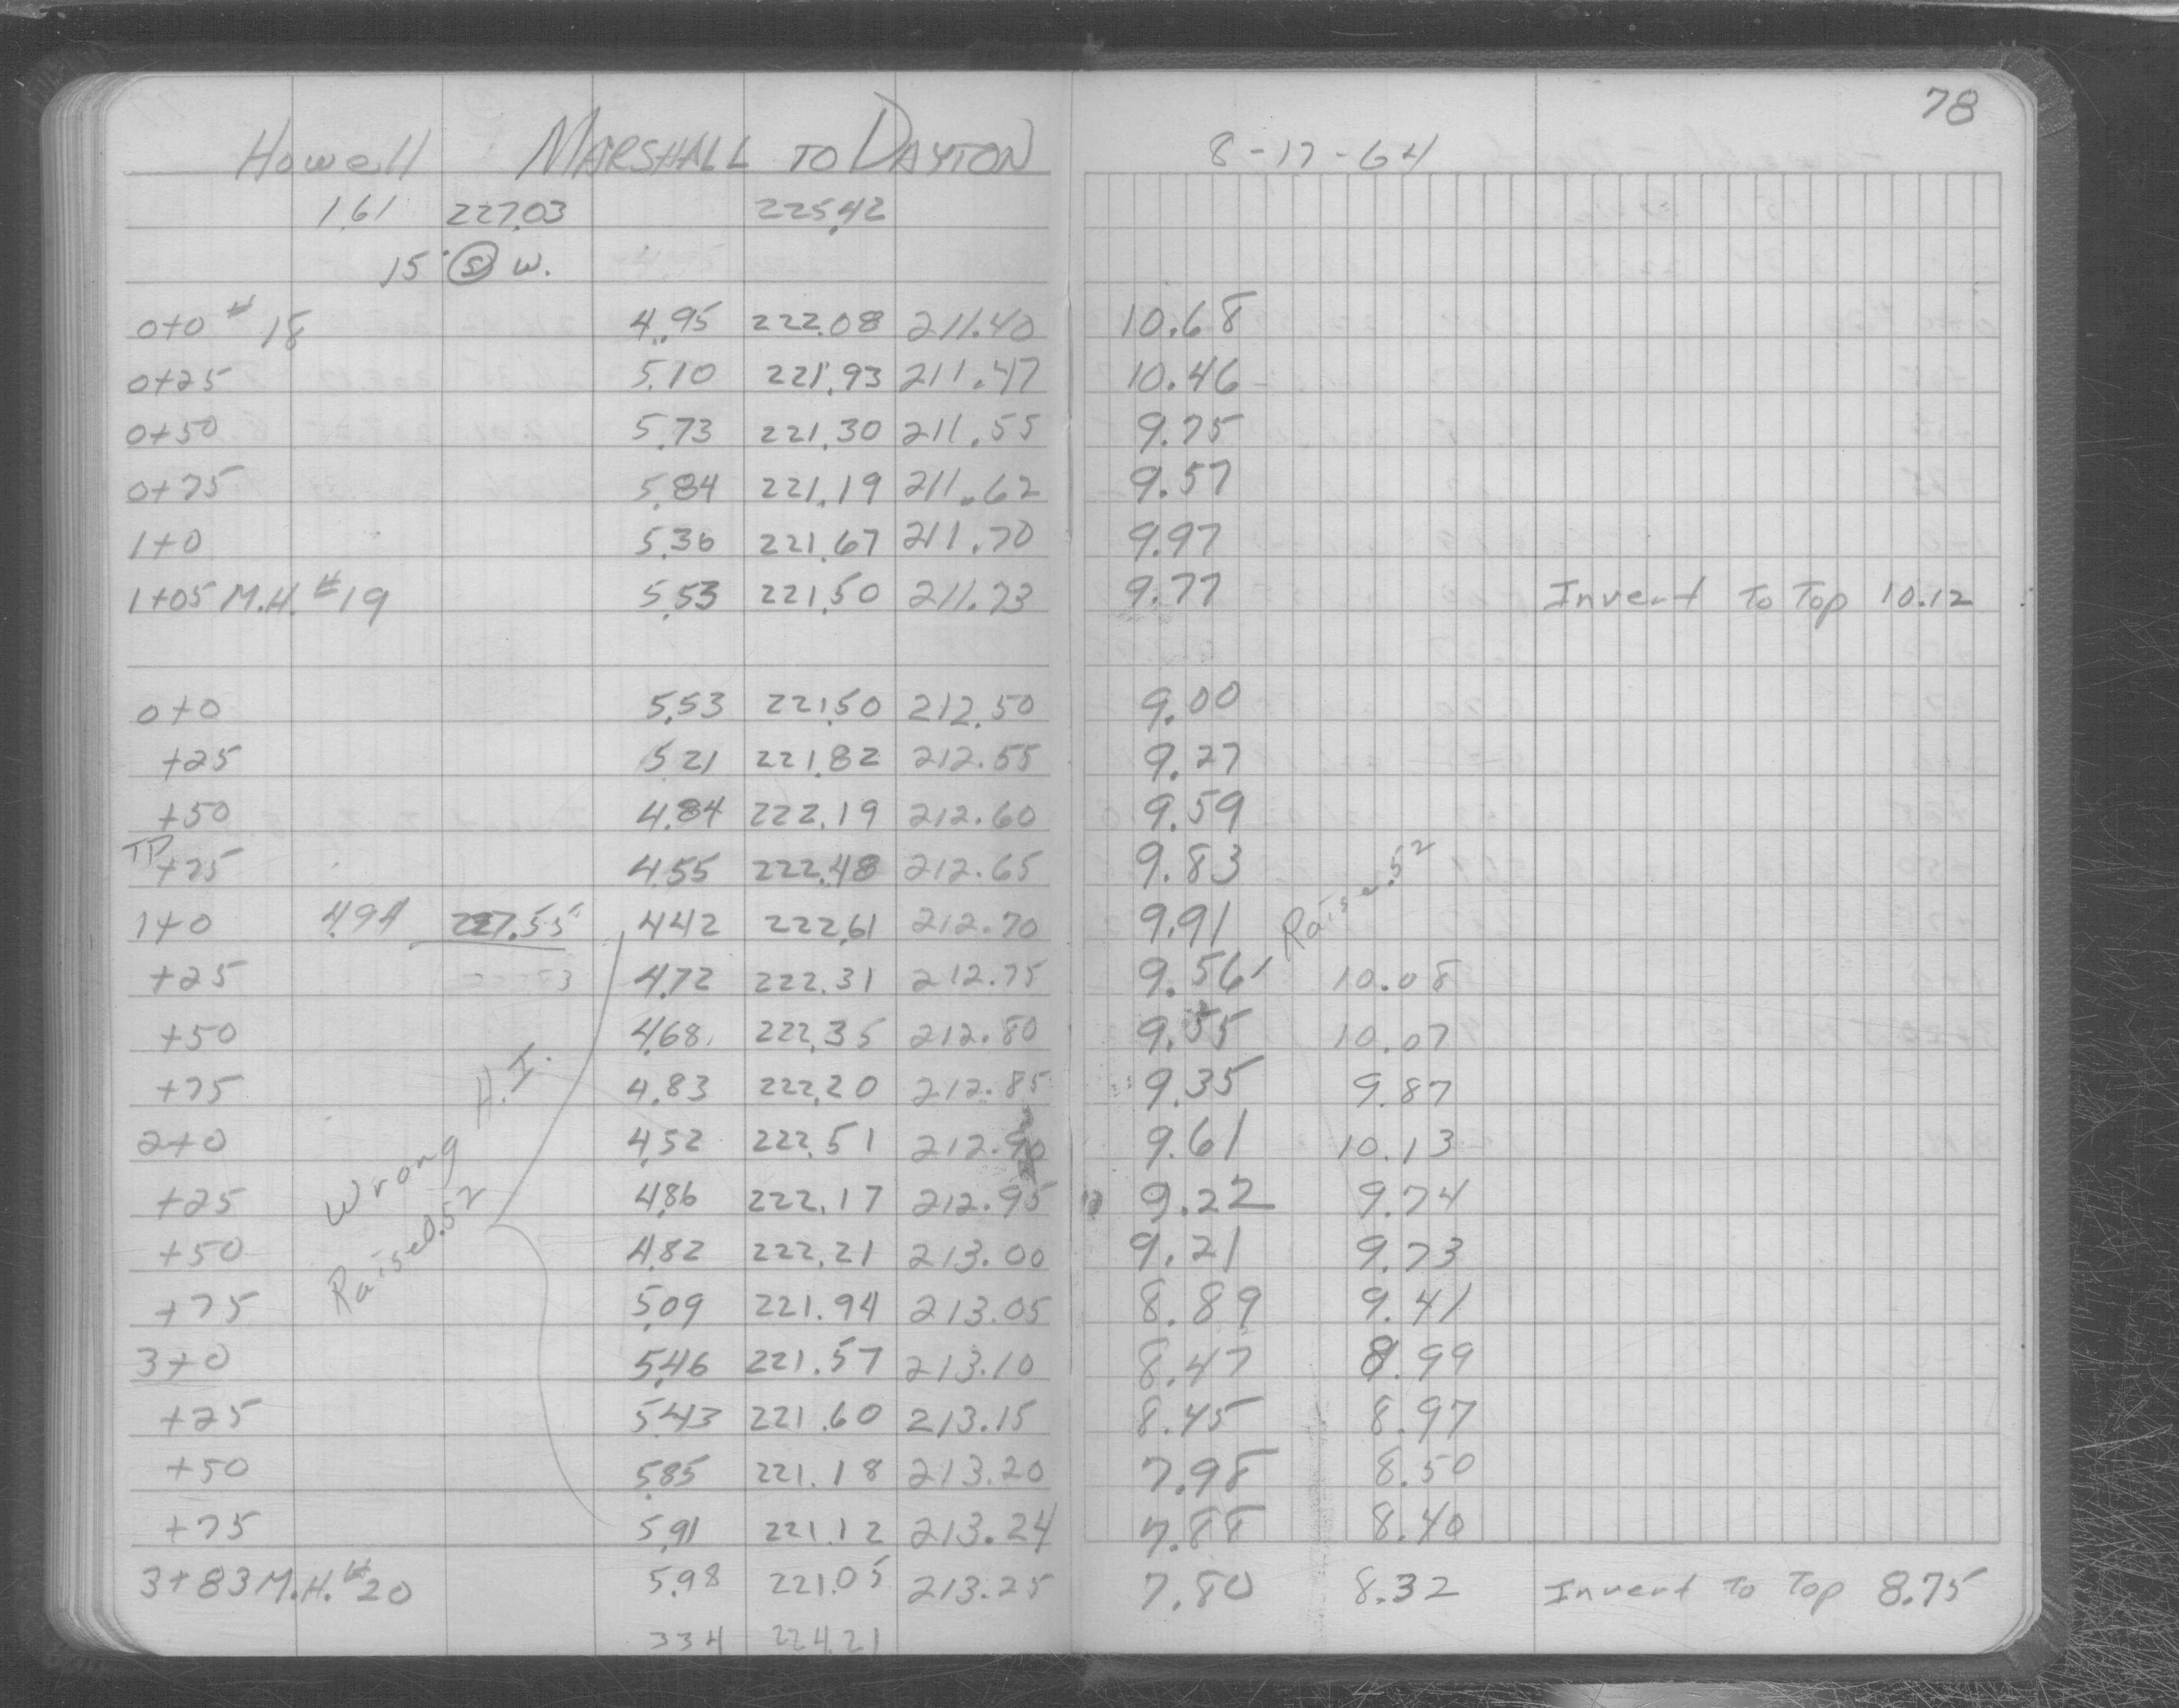 78
Howell MARSHALL TO DAYTON 8-17-64
1.61 227.03 225.42
15" S W.
0+0 # 18 4.95 222.08 211.40 10.68
0+25 5.10 221.93 211.47 10.46
0+50 5.73 221.30 211.55 9.75
0+75 5.84 221.19 211.62 9.57
1+0 5.36 221.67 211.70 9.97
1+05 M.H. #19 5.53 221.50 211.73 9.77 Invert To Top 10.12
0+0 5.53 221.50 212.50 9.00
+25 5.21 221.82 212.55 9.27
+50 4.84 222.19 212.60 9.59
TP +75 4.55 222.48 212.65 9.83
1+0 4.94 227.55 4.42 222.61 212.70 9.91 Raise .52
+25 4.72 222.31 212.75 9.56 10.08
+50 4.68 222.35 212.80 9.55 10.07
+75 4.83 222.20 212.85 9.35 9.87
2+0 4.52 222.51 212.90 9.61 10.13
+25 4.86 222.17 212.95 9.22 9.74
+50 4.82 222.21 213.00 9.21 9.73
+75 5.09 221.94 213.05 8.89 9.41
Wrong H.I.
Raise 0.52
3+0 5.46 221.57 213.10 8.47 8.99
+25 5.43 221.60 213.15 8.45 8.97
+50 5.85 221.18 213.20 7.98 8.50
+75 5.91 221.12 213.24 7.88 8.40
3+83 M.H. #20 5.98 221.05 213.25 7.80 8.32 Invert To Top 8.75
334 224.21